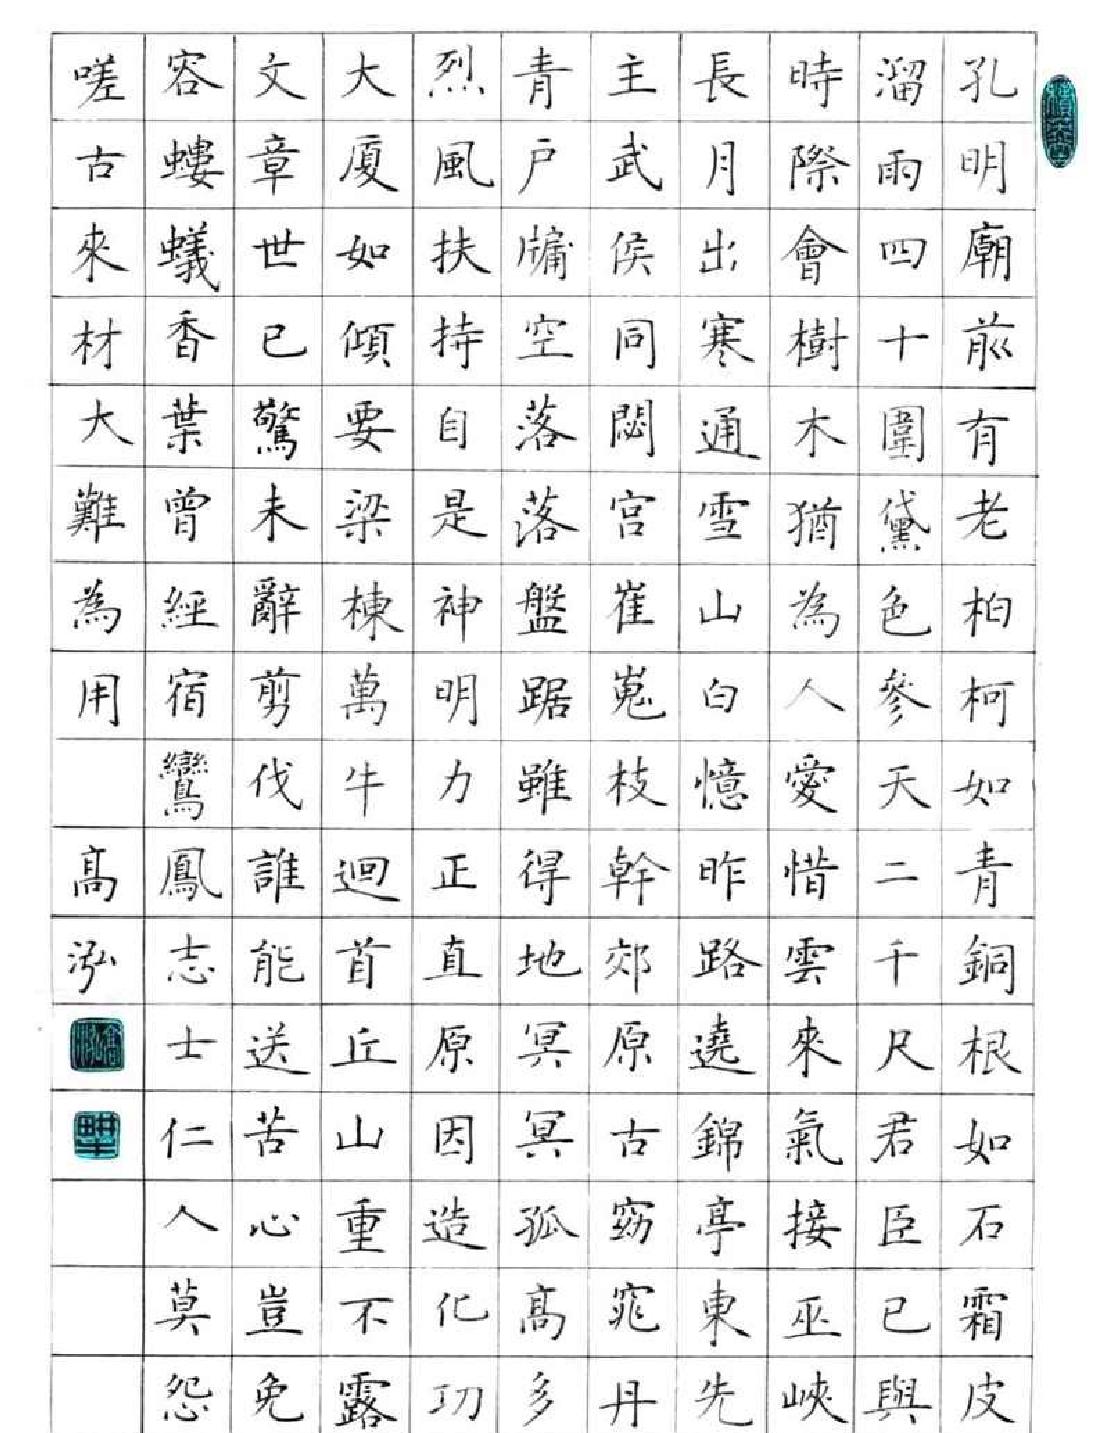 孔明廟前有老柏柯如青銅根如石霜皮
溜雨四十圍黛色參天二千尺君臣已與
時際會樹木猶為人愛惜雲來氣接巫峽
長月出寒通雪山白憶昨路遶錦亭東先
主武侯同閟宮崔嵬枝幹郊原古窈窕丹
青戶牖空落落盤踞雖得地冥冥孤髙多
烈風扶持自是神明力正直原因造化功
大廈如傾要梁棟萬牛迴首丘山重不露
文章世已驚未辭剪伐誰能送苦心豈免
容螻蟻香葉曾經宿鸞鳳志士仁人莫怨
嗟古來材大難為用 髙泓